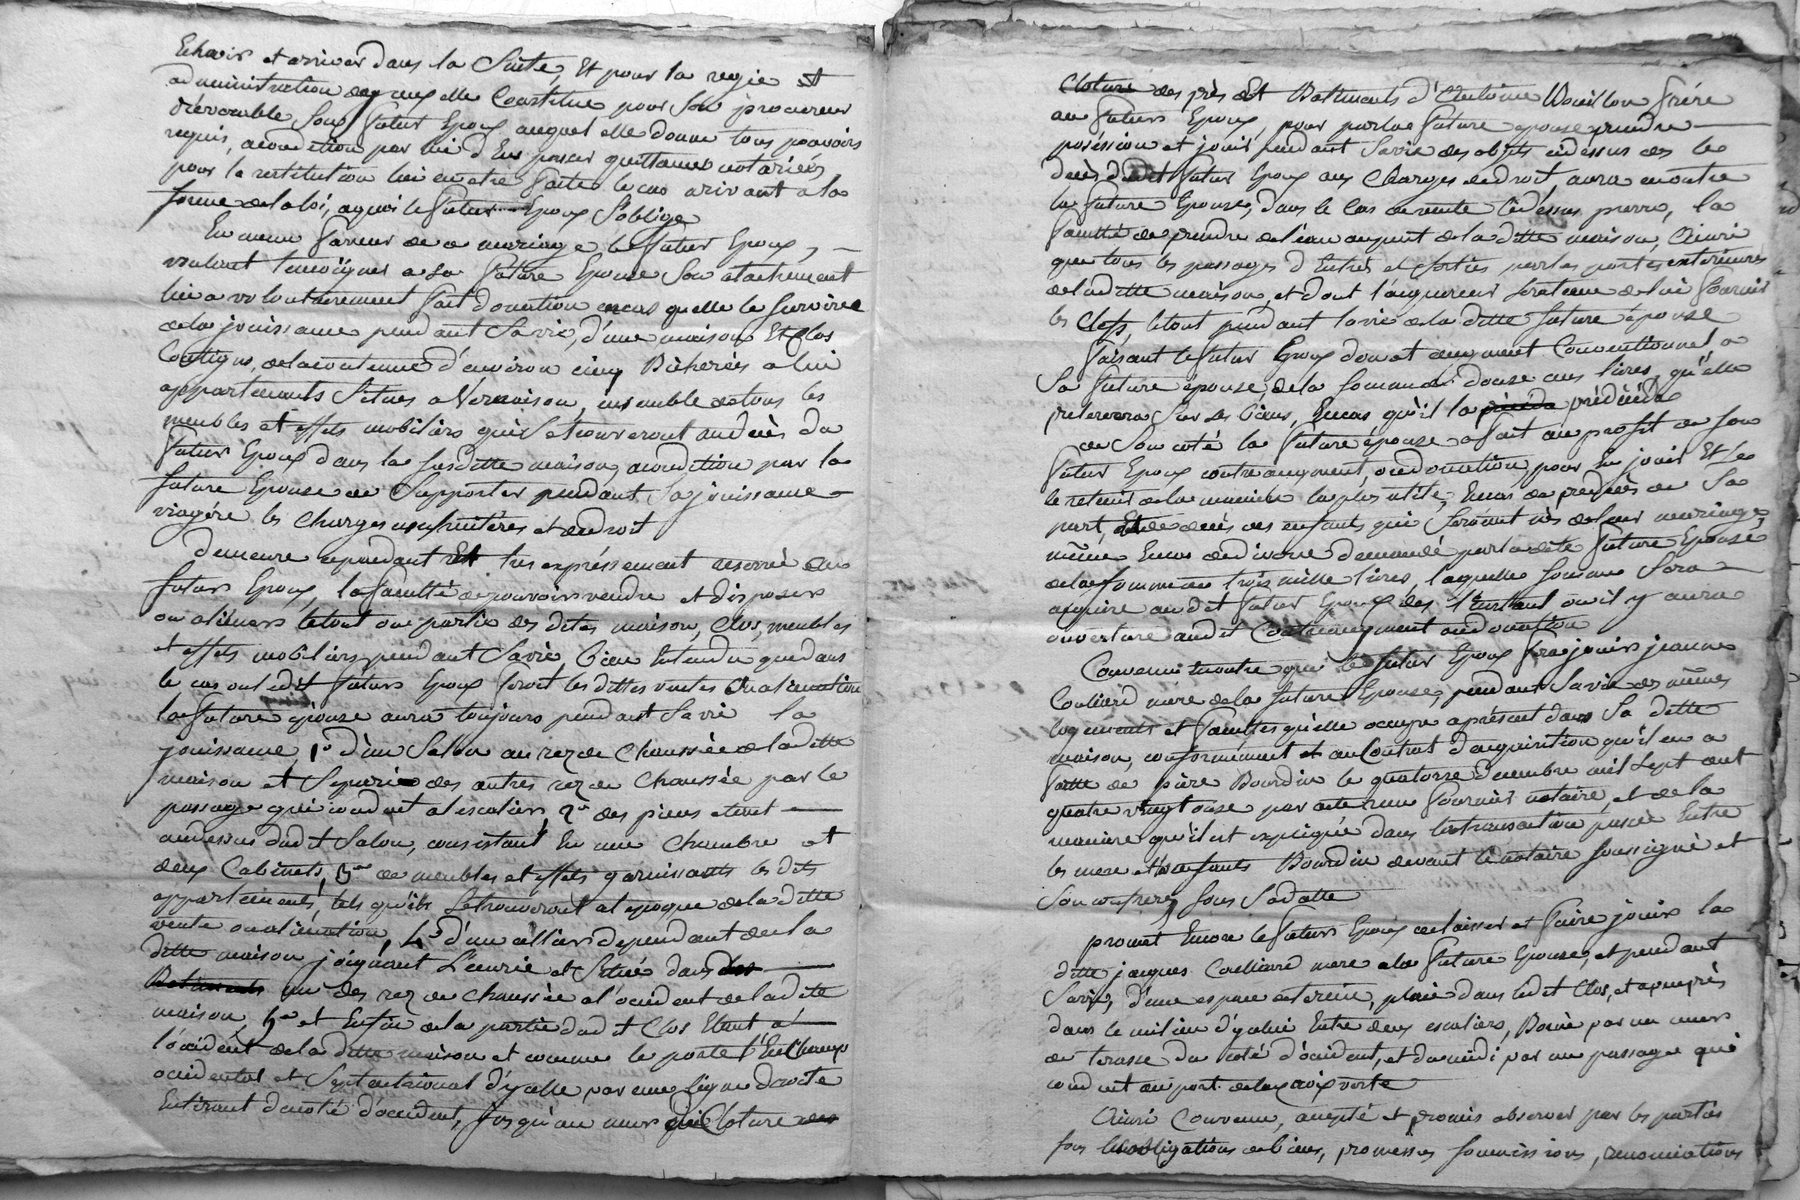 Echoir et arriver dans la Suite, Et pour la regie et
administration desquels elle Constitue pour son procureur
irévocable Sond. futur Epoux auquel elle donne tous pouvoirs
requis, acondition par lui d'En passer quittances notariées
pour la restitution lui en etre faite le cas arivant a la
forme de la loi, aquoi le futur Epoux S'oblige
En meme faveur de ce mariage le futur Epoux,
voulant temoigner a sa future Epouse Son atachement
lui a volontairement fait donation en cas quelle le Survive
de la jouissance pendant Sa vie, d'une maison Et Clos
Contigus, de la contenue d'environ cinq Bicherées a lui
appartenants Situés a Vernaison, ensemble de tous les
meubles et effets mobiliers qui Se trouveront au decès du
futur Epoux dans la Susditte maison, acondition par la
future Epouse de Supporter pendant Sa jouissance
viagére les Charges usufruitéres et de droit
Demeure cependant Et tres expréssement reservé au
futur Epoux, la faculté de pouvoir vendre et disposer
ou aliéner le tout ou partie des dites maison, Clos, meubles
et effets mobiliers pendant Sa vie, bien Entendu que dans
le cas ou ledit futur Epoux feroit les dittes ventes ou alienation
la future epouse aura toujours pendant Sa vie la
jouissance, 1° d'un Salon au rez de Chaussée de la ditte
maison et Separé des autres rez de Chaussée par le
passage qui conduit a l'escalier, 2° des pieces etant
audessus dudit Salon, consistant En une Chambre et
deux Cabinets, 3° de meubles et effets garnissants les dits
appartements, tels qu'ils Se trouveront a l'epoque de la ditte
vente ou aliénation, 4° d'un cellier dependant de la
ditte maison joignant L'ecurie et Situé dans
Batiments un des rez de Chaussée a l'occident de la ditte
maison, 5° et Enfin de la partie dudit Clos Etant a
l'occident de la ditte maison et comme le porte l'
occidental et Septentrional d'ycelle par une ligne droite
En tirant du coté d'occident, jusqu'au mur qui Cloture
Cloture des près Et Batiments d'Antoine frére
au futur Epoux, pour par la future epouse prendre
poséssion et jouir pendant Sa vie des objets cidessus des le
decès dudit futur Epoux aux Charges de droit, aura enoutre
la future Epouse, dans le Cas de vente Cidessus prevu, la
faculté de prendre de l'eau au puit de la ditte maison, Ainsi
que tous les passages d'Entrés et Sorties par les portes exterieures
de la ditte maison, et dont l'aquereur Sera tenu de lui fournir
les Clefs, le tout pendant la vie de la ditte future épouse
Faisant le futur Epoux don et augment Conventionnel a
Sa future epouse, de la Somme de douze cens livres, qu'elle
prelevera Sur ses biens, En cas qu'il la prédécéda
de Son coté la future epouse a fait au profit de Son
futur Epoux contre augment, ou donation, pour En jouir Et se
le retenir de la maniére la plus utile, En cas de predecès de Sa
part, Et de decès des enfants qui Seroient nés de leur mariage,
même En cas de divorce demandé par la ditte future Epouse,
de la Somme de trois mille livres, laquelle Somme Sera
aquise audit futur Epoux des l'instant ou il y aura
ouverture audit Contre augment ou donation
Convenu enoutre que le futur Epoux fera jouir jeanne
Couliard mere de la future Epouse, pendant Sa vie des mêmes
logements et facultes qu'elle occupe apresent dans Sa ditte
maison, conformément au Contrat d'acquisition qu'il en a
faitte de piére Bourdin le quatorze decembre mil Sept cent
quatre vingt onze par acte reçu Fournier notaire, et de la
maniere qu'il est expliquée dans la transaction passée Entre
les mere et enfants Bourdin devant le notaire soussigné et
Son confrere, Sous Sa datte
promet Encore le futur Epoux de laisser et faire jouir la
ditte Couliard mere a la future Epouse, et pendant
Sa vie, d'une espace de terrein, placé dans ledit Clos, et apeuprès
dans le milieu d'ycelui Entre deux escaliers, Borné par un mur
de terasse du coté d'occident, et du midi par un passage qui
conduit au port de la croix verte
Ainsi Convenu, accepté et promis observer par les parties
sous les obligations de biens, promesses soumissions, renonciations